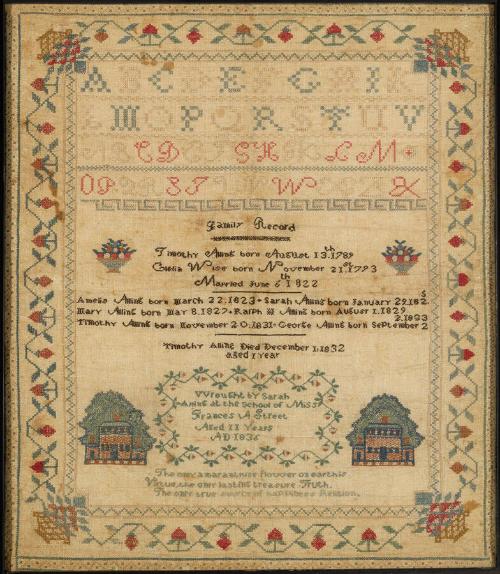 A C E G I
M P R S T U V
C D G H L M
O P S T W X
Family Record
Timothy Aming born August 13th 1789
Cusia Wise born November 21st 1793
Married June 6th 1822
Amelia Aming born March 22.1823 Sarah Aming born January 29.182 5
Mary Aming born May 8.1827 Ralph H Aming born August 1.1829
Timothy Aming born November 20.1831 George Aming born September 2 2.1833
Timothy Aming Died December 1.1832
aged 1 year
Wrought by Sarah
Aming at the School of Miss
Frances A Street
Aged 11 Years
AD 1836
The only amaranthine flower on earth is
Virtue, the only lasting treasure Truth.
The only true source of happiness Religion.